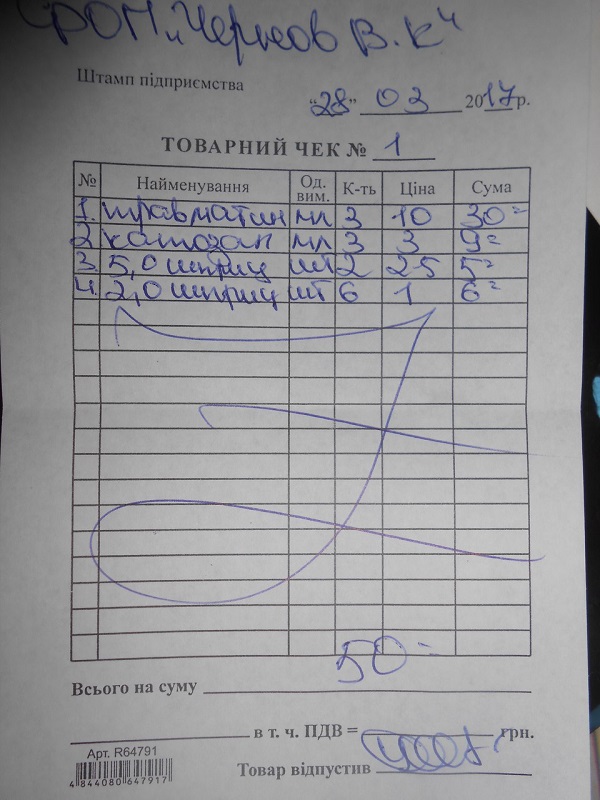 ФОП „Чернов В. К“
Штамп підприємства
“28” 03 2017 р.
ТОВАРНИЙ ЧЕК № 1
№ Найменування Од. вим. К-ть Ціна Сума
1. травматин мл 3 10 30=
2 катозал мл 3 3 9=
3. 5,0 шприц шт 2 25 5=
4. 2,0 шприц шт 6 1 6=
50=
Всього на суму
в т. ч. ПДВ = грн.
Арт. R64791
Товар відпустив
4 844080 647917